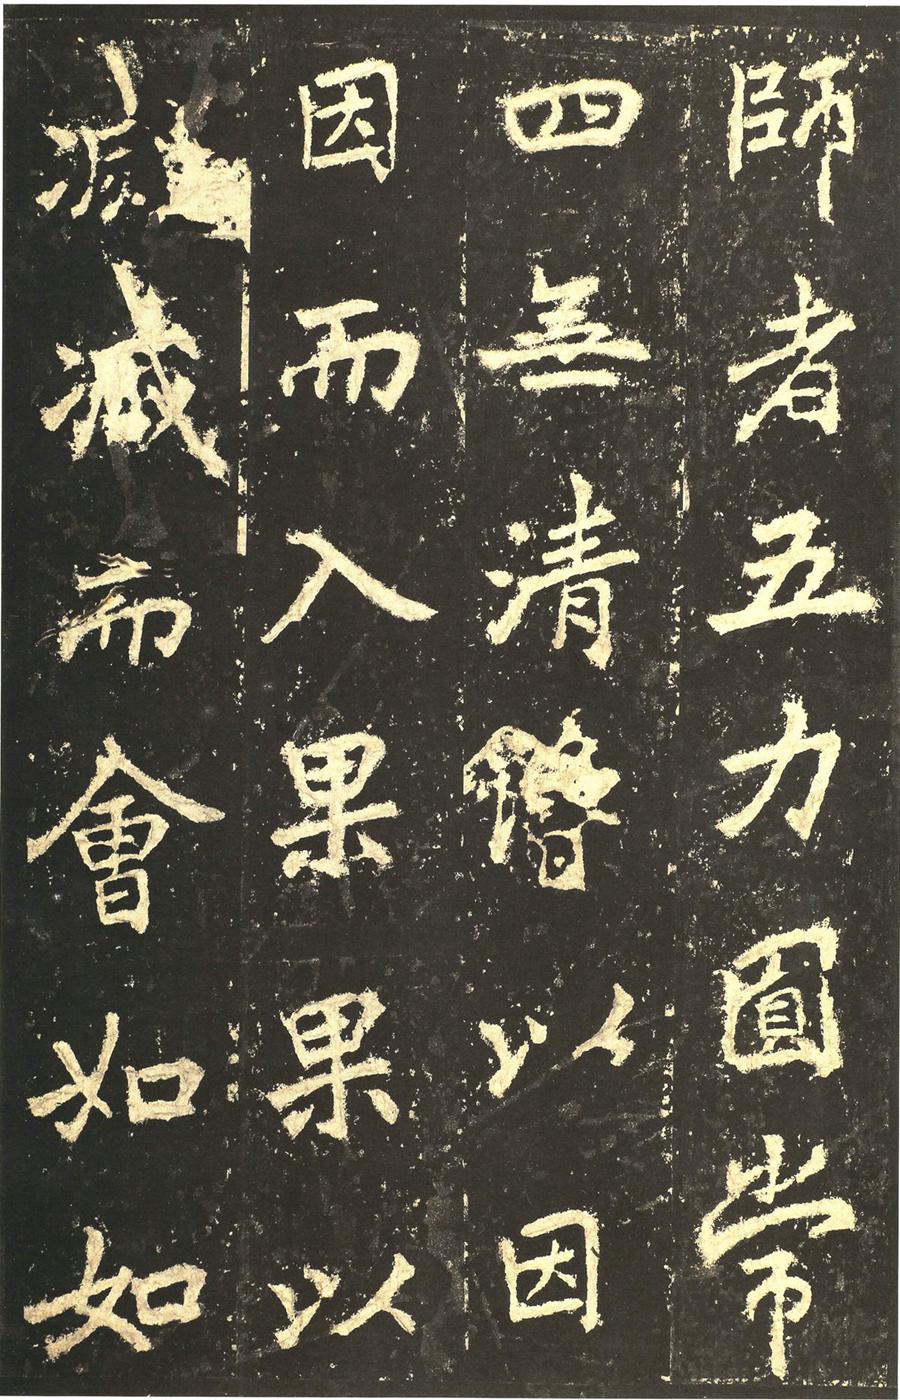 師者五力圓常
四無清僭以因
因而入果果以
滅滅而會如如